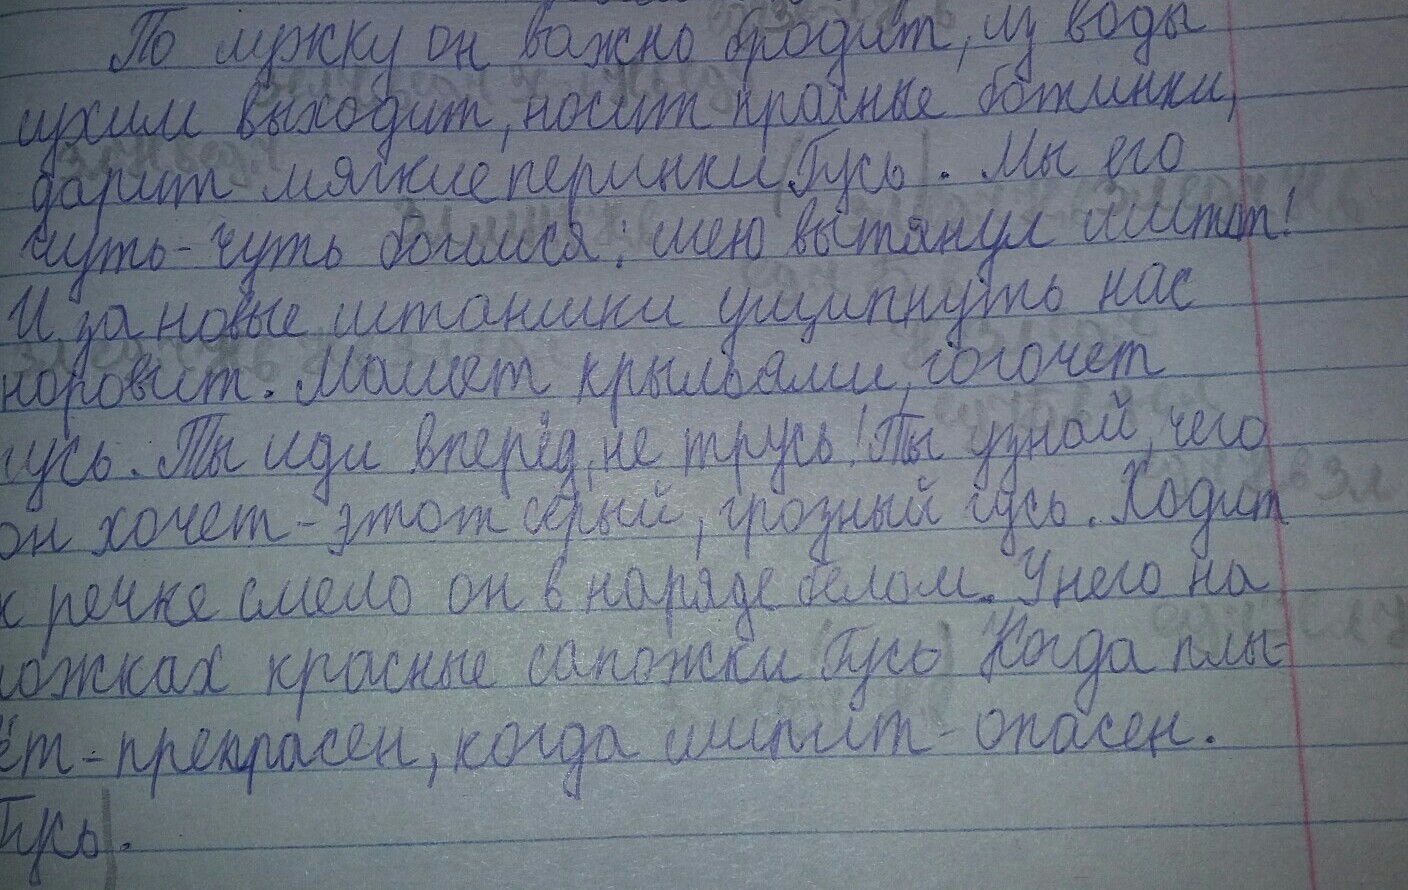 По лужку он важно бродит, из воды
сухим выходит, носит красные ботинки,
дарит мягкие перинки (Гусь). Мы его
чуть-чуть боимся: шею вытянул шипит!
И за новые штанишки ущипнуть нас
норовит. Машет крыльями, гогочет
гусь. Ты иди вперёд, не трусь! Ты узнай, чего
он хочет - этот серый, грозный гусь. Ходит
к речке смело он в наряде белом. У него на
ножках красные сапожки (Гусь) Когда плы-
ёт - прекрасен, когда шипит - опасен.
Гусь).